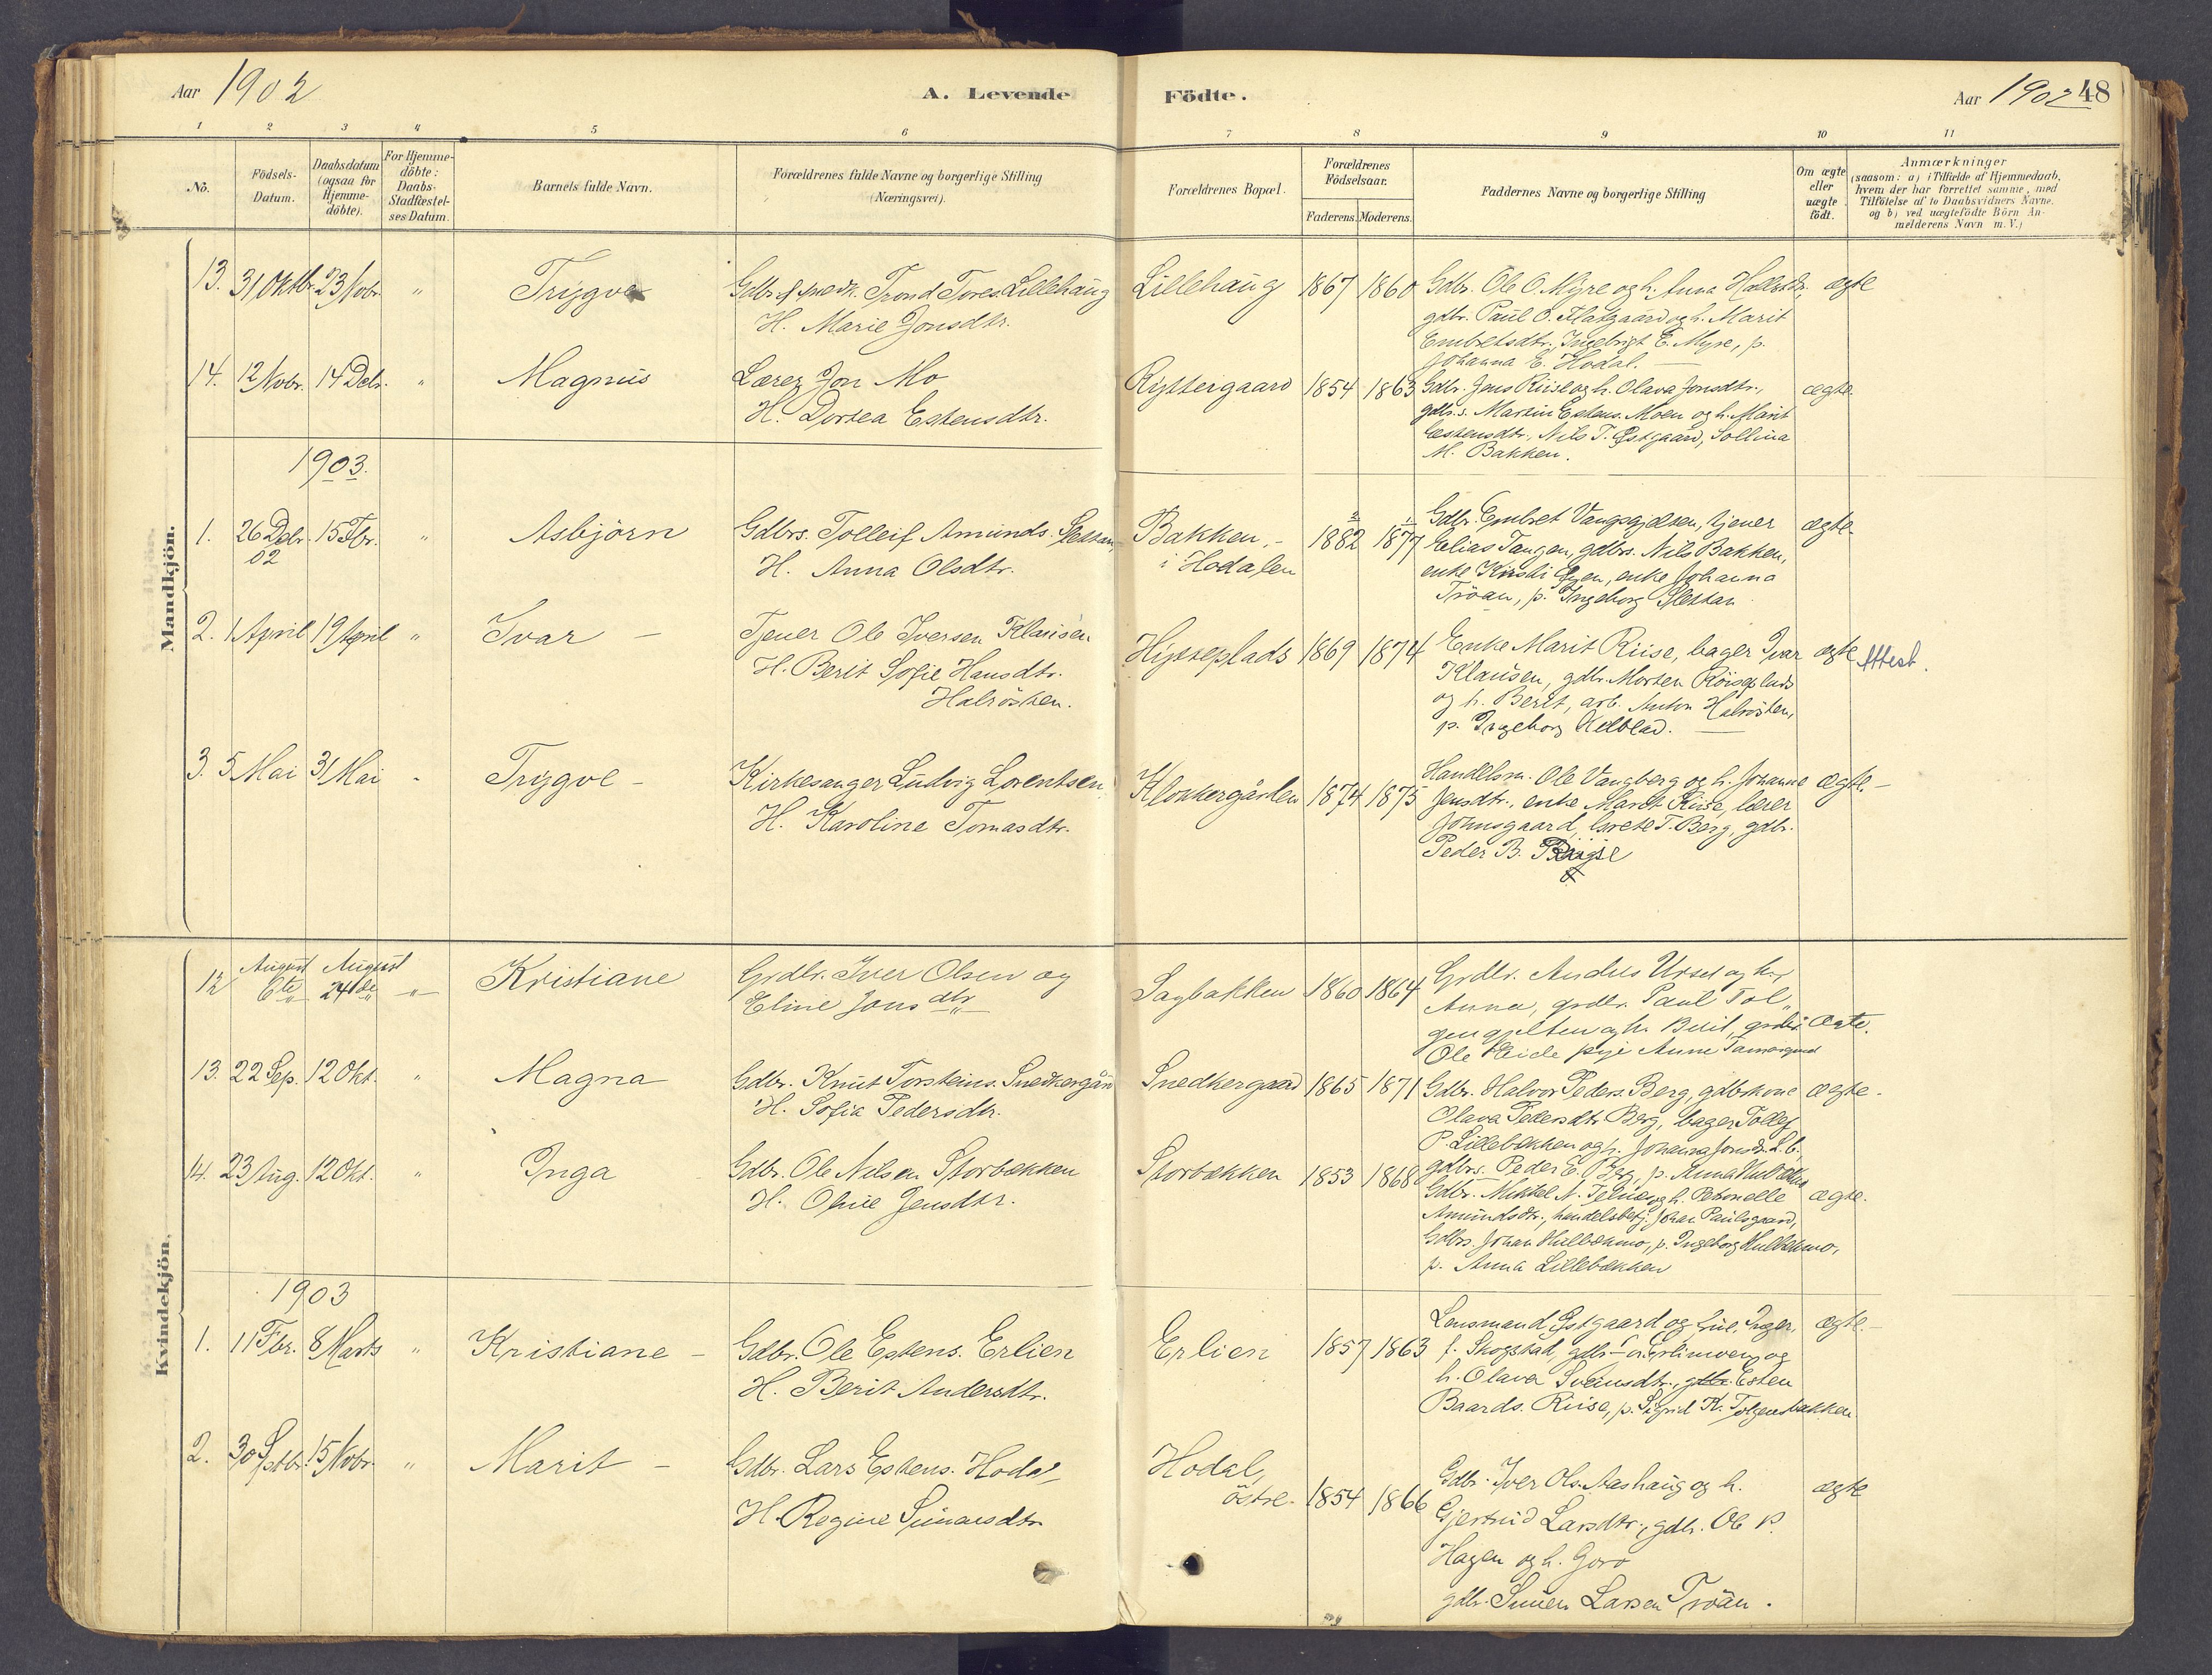 Aar 1902
A. Levende Födte.
Aar 1902 48
1 2 3 4 5 6 7 8 9 10 11
No.
Födsels-Datum.
Daabsdatum (ogsaa for Hjemmedöbte).
For Hjemmedöbte: Daabs-Stadfæstelses Datum.
Barnets fulde Navn.
Forældrenes fulde Navne og borgerlige Stilling (Næringsvei).
Forældrenes Bopæl.
Forældrenes Födselsaar.
Faderens. Moderens.
Faddernes Navne og borgerlige Stilling
Om ægte eller uægte födt.
Anmærkninger
(saasom: a) i Tilfælde af Hjemmedaab,
hvem der har forrettet samme, med
Tilföielse af to Daabsvidners Navne.
og b) ved uægtefödte Börn An-
melderens Navn m. V.)
Mandkjön.
13. 31 Oktbr. 23 Novbr. " Trygve Gdbr. Trond Tores. Lillehaug Lillehaug 1867 1860 Gdbr. Ole O. Myre og h. Anna ægte
H. Marie Jonsdtr.
gdbr. Paul O. og h. Marit
Embretsdtr., Ingebrigt E. Myre, p.
Johanna E. Hodal.
14. 12 Novbr. 14 Debr. " Magnus Lærer Jon Mo Ryttergaard 1854 1863 Gdbr. Jens Riise og h. Olava Jonsdtr., ægte.
H. Dortea Estensdtr.
gdbr.s. Martin Estens. Moen og h. Marit
Estensdtr., Nils T. Østgaard, Sollina
M. Bakken.
1903.
1. 26 Debr. 02 15 Fbr. " Asbjörn Gdbrs. Tolleif Amunds. Slettan, Bakken, - 1882 1877 Gdbr. Embret Vangsgjelsen, tjener ægte.
H. Anna Olsdtr. i Hodalen
Elias Tangen, gdbrs. Nils Bakken,
enke Kirsti, enke Johanna
Tröan, p. Ingeborg Slettan
2. 1 April 19 April " Ivar - Tjener Ole Iversen Klausen Hytteplads 1869 1874 Enke Marit Riise, bager Ivar ægte Attest.
H. Berit Sofie Hansdtr.
Halrösten.
Klausen, gdbr. Morten
og h. Berit, arb. Anton Halrösten,
p. Ingeborg
3. 5 Mai 31 Mai - Trygve - Kirkesanger Ludvig Lorentsen Klokkergården 1874 1875 Handelsm. Ole Vangberg og h. Johanne ægte. -
H. Karoline Tomasdtr.
Jensdtr., enke Marit Riise, lærer
Johnsgaard, Grete T. Berg, gdbr.
Peder B. Riise
Kvindekjön.
12 August 6te August 24de " Kristiane Grdbr. Iver Olsen og Sagbakken 1860 1864 Grdbr. Anders Urset og h.
Eline Jonsdtr.
Anna, grdbr. Paul Tol-
og h. Berit, grdbr. ægte.
Ole Eide pige Anne
13. 22 Sep. 12 Okt. " Magna Gdbr. Knut Torsteins. Snedkergård Snedkergaard 1865 1871 Gdbr. Halvor Peders. Berg, gdbrkone ægte.
H. Sofia Pedersdtr.
Olava Pedersdtr Berg, bager Tollef
P. Lillebækken og h. Johanna Jonsdtr. L.b.,
gdbrs. Peder E. Berg, p. Anna
14. 23 Aug. 12 Okt. " Inga Gdbr. Ole Nilsen Storbækken Storbækken 1853 1868 Gdbr. Mikkel N. og h. Petronelle ægte.
H. Oline Jensdtr.
Amundsdtr., handelsbetj. Johan Paulsgaard,
Gdbrs. Johan Hulbækmo, p. Ingeborg Hulbækmo,
p. Anna Lillebækken
1903
1. 11 Fbr. 8 Marts " Kristiane - Gdbr. Ole Estens. Erlien Erlien 1857 1863 Lensmand Østgaard og fru, Inger, ægte. -
H. Berit Andersdtr.
f. Skogstad, gdbr. og
h. Olava Svensdtr., gdbr. Esten
Baards. Riise, p. Sigrid K. Tolgensbakken
2. 30 Septbr. 15 Novbr. " Marit - Gdbr. Lars Estens. Hodal Hodal, östre. 1854 1866 Gdbr. Iver Ols. Aashaug og h. ægte
H. Regine Simensdtr
Gjertrud Larsdtr., gdbr. Ole P.
Hagen og h. Goro
gdbr. Simen Larsen Tröan.